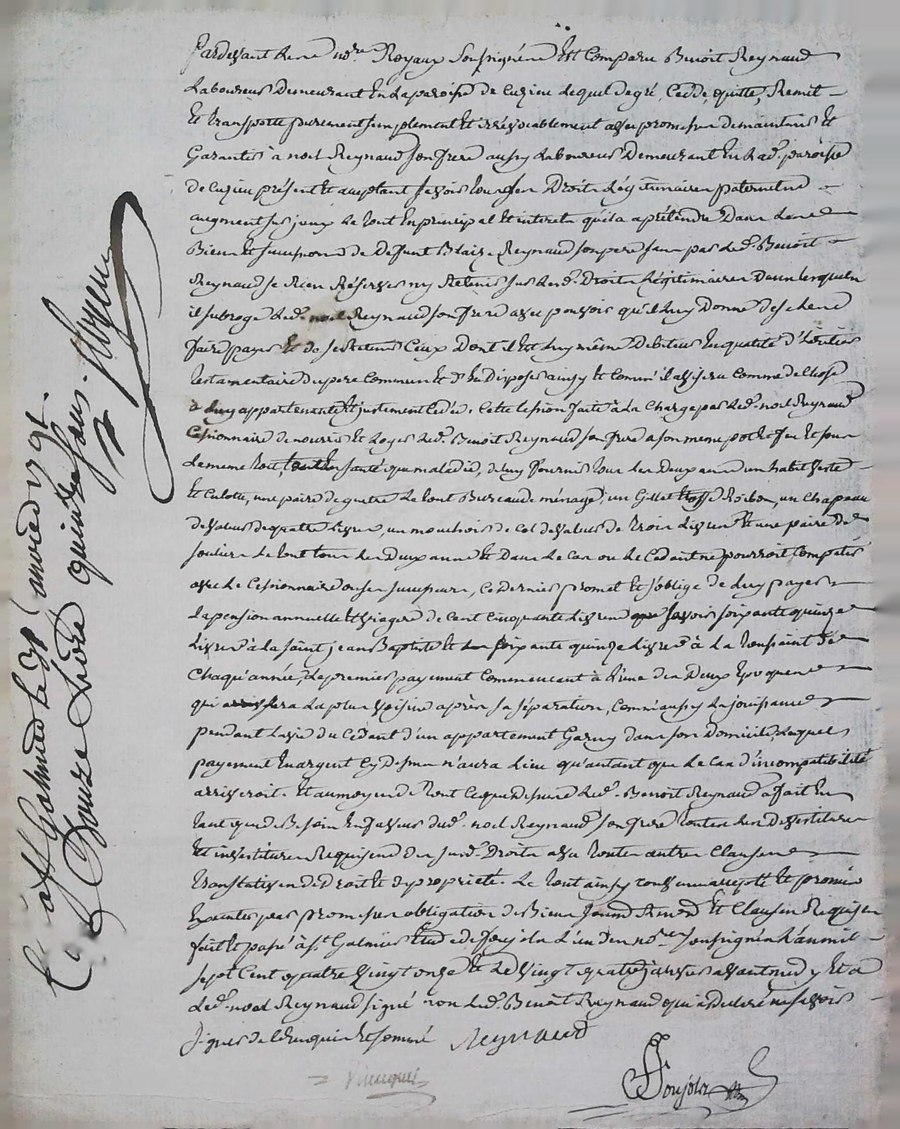 Pardevant les nores. Royaux Soussignés Est Comparu Benoit Reynaud
Laboureur Demeurant En la paroisse de Cuzieu Lequel de gré, Cedde, quitte, Remit
Et transporte purement simplement Et irrevocablement avec promesse de maintenir Et
Garantir à noel Reynaud son frere aussy Laboureur Demeurant En lad. paroisse
de Cuzieu présent Et acceptant Savoir tous ses Droits Légitimaires paternels
augment ses jeux Le tout En principal Et interets qu'il a à prétendre Dans les
Biens Et succession de Deffunt Blaize Reynaud son pere sans par led. Benoit
Reynaud se Rien Réserver ny Retenir sur lesd. Droits Légitimaires Dans lesquels
il subroge led. noel Reynaud son frere avec pouvoir qu'il luy Donne de s'en
faire payer Et de se Retenir Ceux Dont il Est luy même Debiteur En qualité d'héritier
testamentaire du pere Commun Et d'En Disposer ainsy Et Comme il avisera Comme de Chose
à luy appartenante Et justement Cedée. Cette Cession faite à La Charge par led. noel Reynaud
Cessionnaire de nourrir Et Loger led. Benoit Reynaud son frere a son meme pot Et feu Et sous
Le meme toit tant En santé que maladie, de luy fournir tous les Deux ans un habit veste
Et Culotte, une paire de guetre Le tout Bureau de ménage, un Gillet Etoffe, un Chapeau
de valeur de quatre Livres, un mouchoir de Col de valeur de trois Livres Et une paire de
soulier Le tout tous les Deux ans Et Dans Le Cas ou Le Cedant ne pourroit Compatir
avec Le Cessionnaire ou ses successeurs, Ce dernier promet Et s'oblige de luy payer
La pension annuelle Et viagere de Cent Cinquante Livres Savoir soixante quinze
Livres à La Saint jean Baptiste Et soixante quinze Livres à La toussaint de
Chaqu'année, Le premier payement Commencant à L'une des Deux Epoques
qui sera La plus voisine après sa séparation, Comm'aussy La jouissance
pendant La vie du Cedant d'un appartement Garny dans son Domicile, Lequel
payement En argent Cy Dessus n'aura Lieu qu'autant que Le Cas d'incompatibilité
arriveroit. Et au moyend de tout Ce que Dessus Led. Benoit Reynaud a fait En
tant que de Besoin En faveur dud. noel Reynaud son frere toutes Les Devestitures
Et investitures Requises des susd. Droits avec toutes autres Clauses
translatives de Droit Et de propriété. Le tout ainsy Convenu accepté Et promis
par promesse obligation de Biens Et Clauses Requises
fait Et passé à St. Galmier Etude de Poujola L'un des nores. soussignés L'an mil
sept Cent quatre vingt onze Et Le vingt quatre janvier avant midy Et a
Led. noel Reynaud signé non Led. Benoit Reynaud qui a Declaré ne savoir
signer de ce Enquis Et sommé Reynaud
Poujola
Cé à St Galmier Le 27 janvier 1791.
Douze Livres quinze sous.